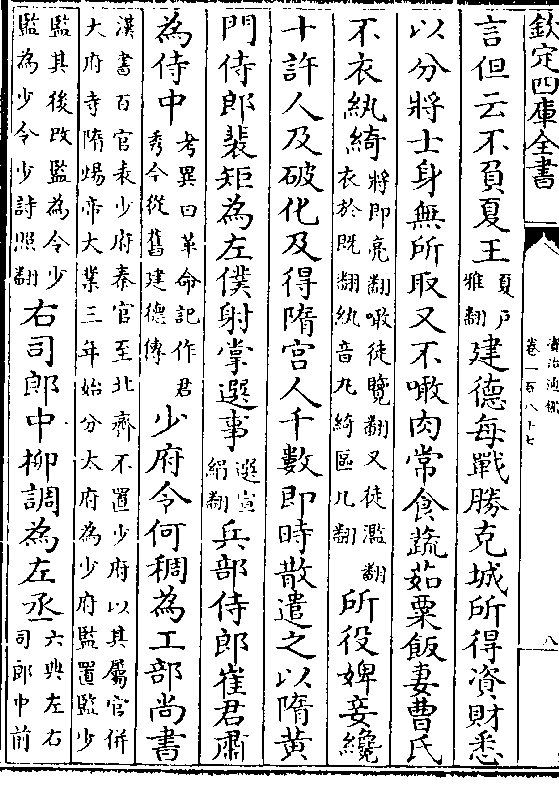 欽定四庫全書
資治通鑑
卷一百八十七
八
言但云不負夏王夏戶雅翻建德每戰勝克城所得資財悉
以分將士身無所取又不噉肉常食蔬茹粟飯妻曹氏
不衣紈綺將即亮翻噉徒覽翻又徒濫翻衣於既翻紈音丸綺區几翻所役婢妾纔
十許人及破化及得隋宫人千數即時散遣之以隋黄
門侍郎裴矩為左僕射掌選事選宣絹翻兵部侍郎崔君肅
為侍中考異曰革命記作君秀今從舊建德傳少府令何稠為工部尚書
漢書百官表少府秦官至北齊不置少府以其屬官併大府寺隋煬帝大業三年始分太府為少府監置監少
監其後改監為令少監為少令少詩照翻右司郎中柳調為左丞六典左右司郎中前